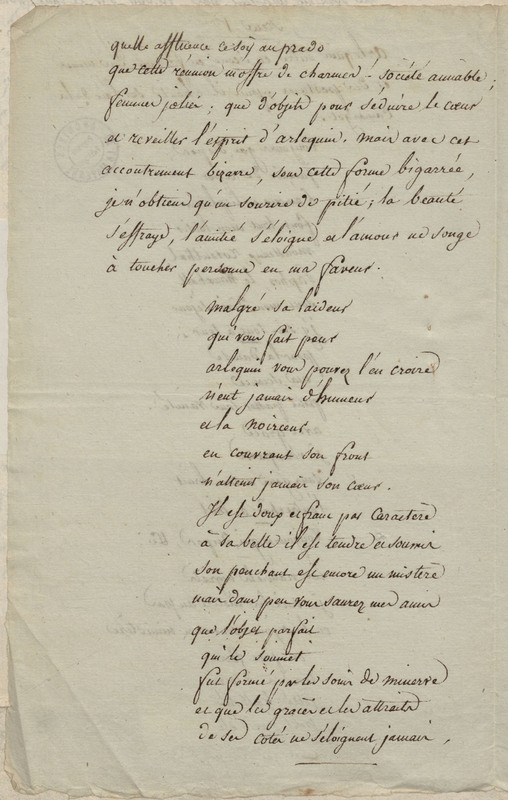 quelle affluence ce soir au prado
que cette réunion m'offre de charmes - société aimable,
femmes jolies ; que d'objets pour séduire le cœur
et reveiller l'esprit d'arlequin. mais avec cet
accoutrement bizarre, sous cette forme bigarrée,
je n'obtiens qu'un sourire de pitié ; la beauté
s'effraye, l'amitié s'éloigne et l'amour ne songe
à toucher personne en ma faveur.
malgré sa laideur
qui vous fait peur
arlequin vous pouvez l'en croire
n'eut jamais d'humeur
et la noirceur
en couvrant son front
n'atteint jamais son cœur.
Il est doux et franc par caractere
à sa belle il est tendre et soumis
son penchant est encore un mistere
mais dans peu vous saurez mes amis
que l'objet parfait
qui le soumet
fut formé par les soins de minerve
et que les graces et les attraits
de ses cotés ne s'éloignent jamais.